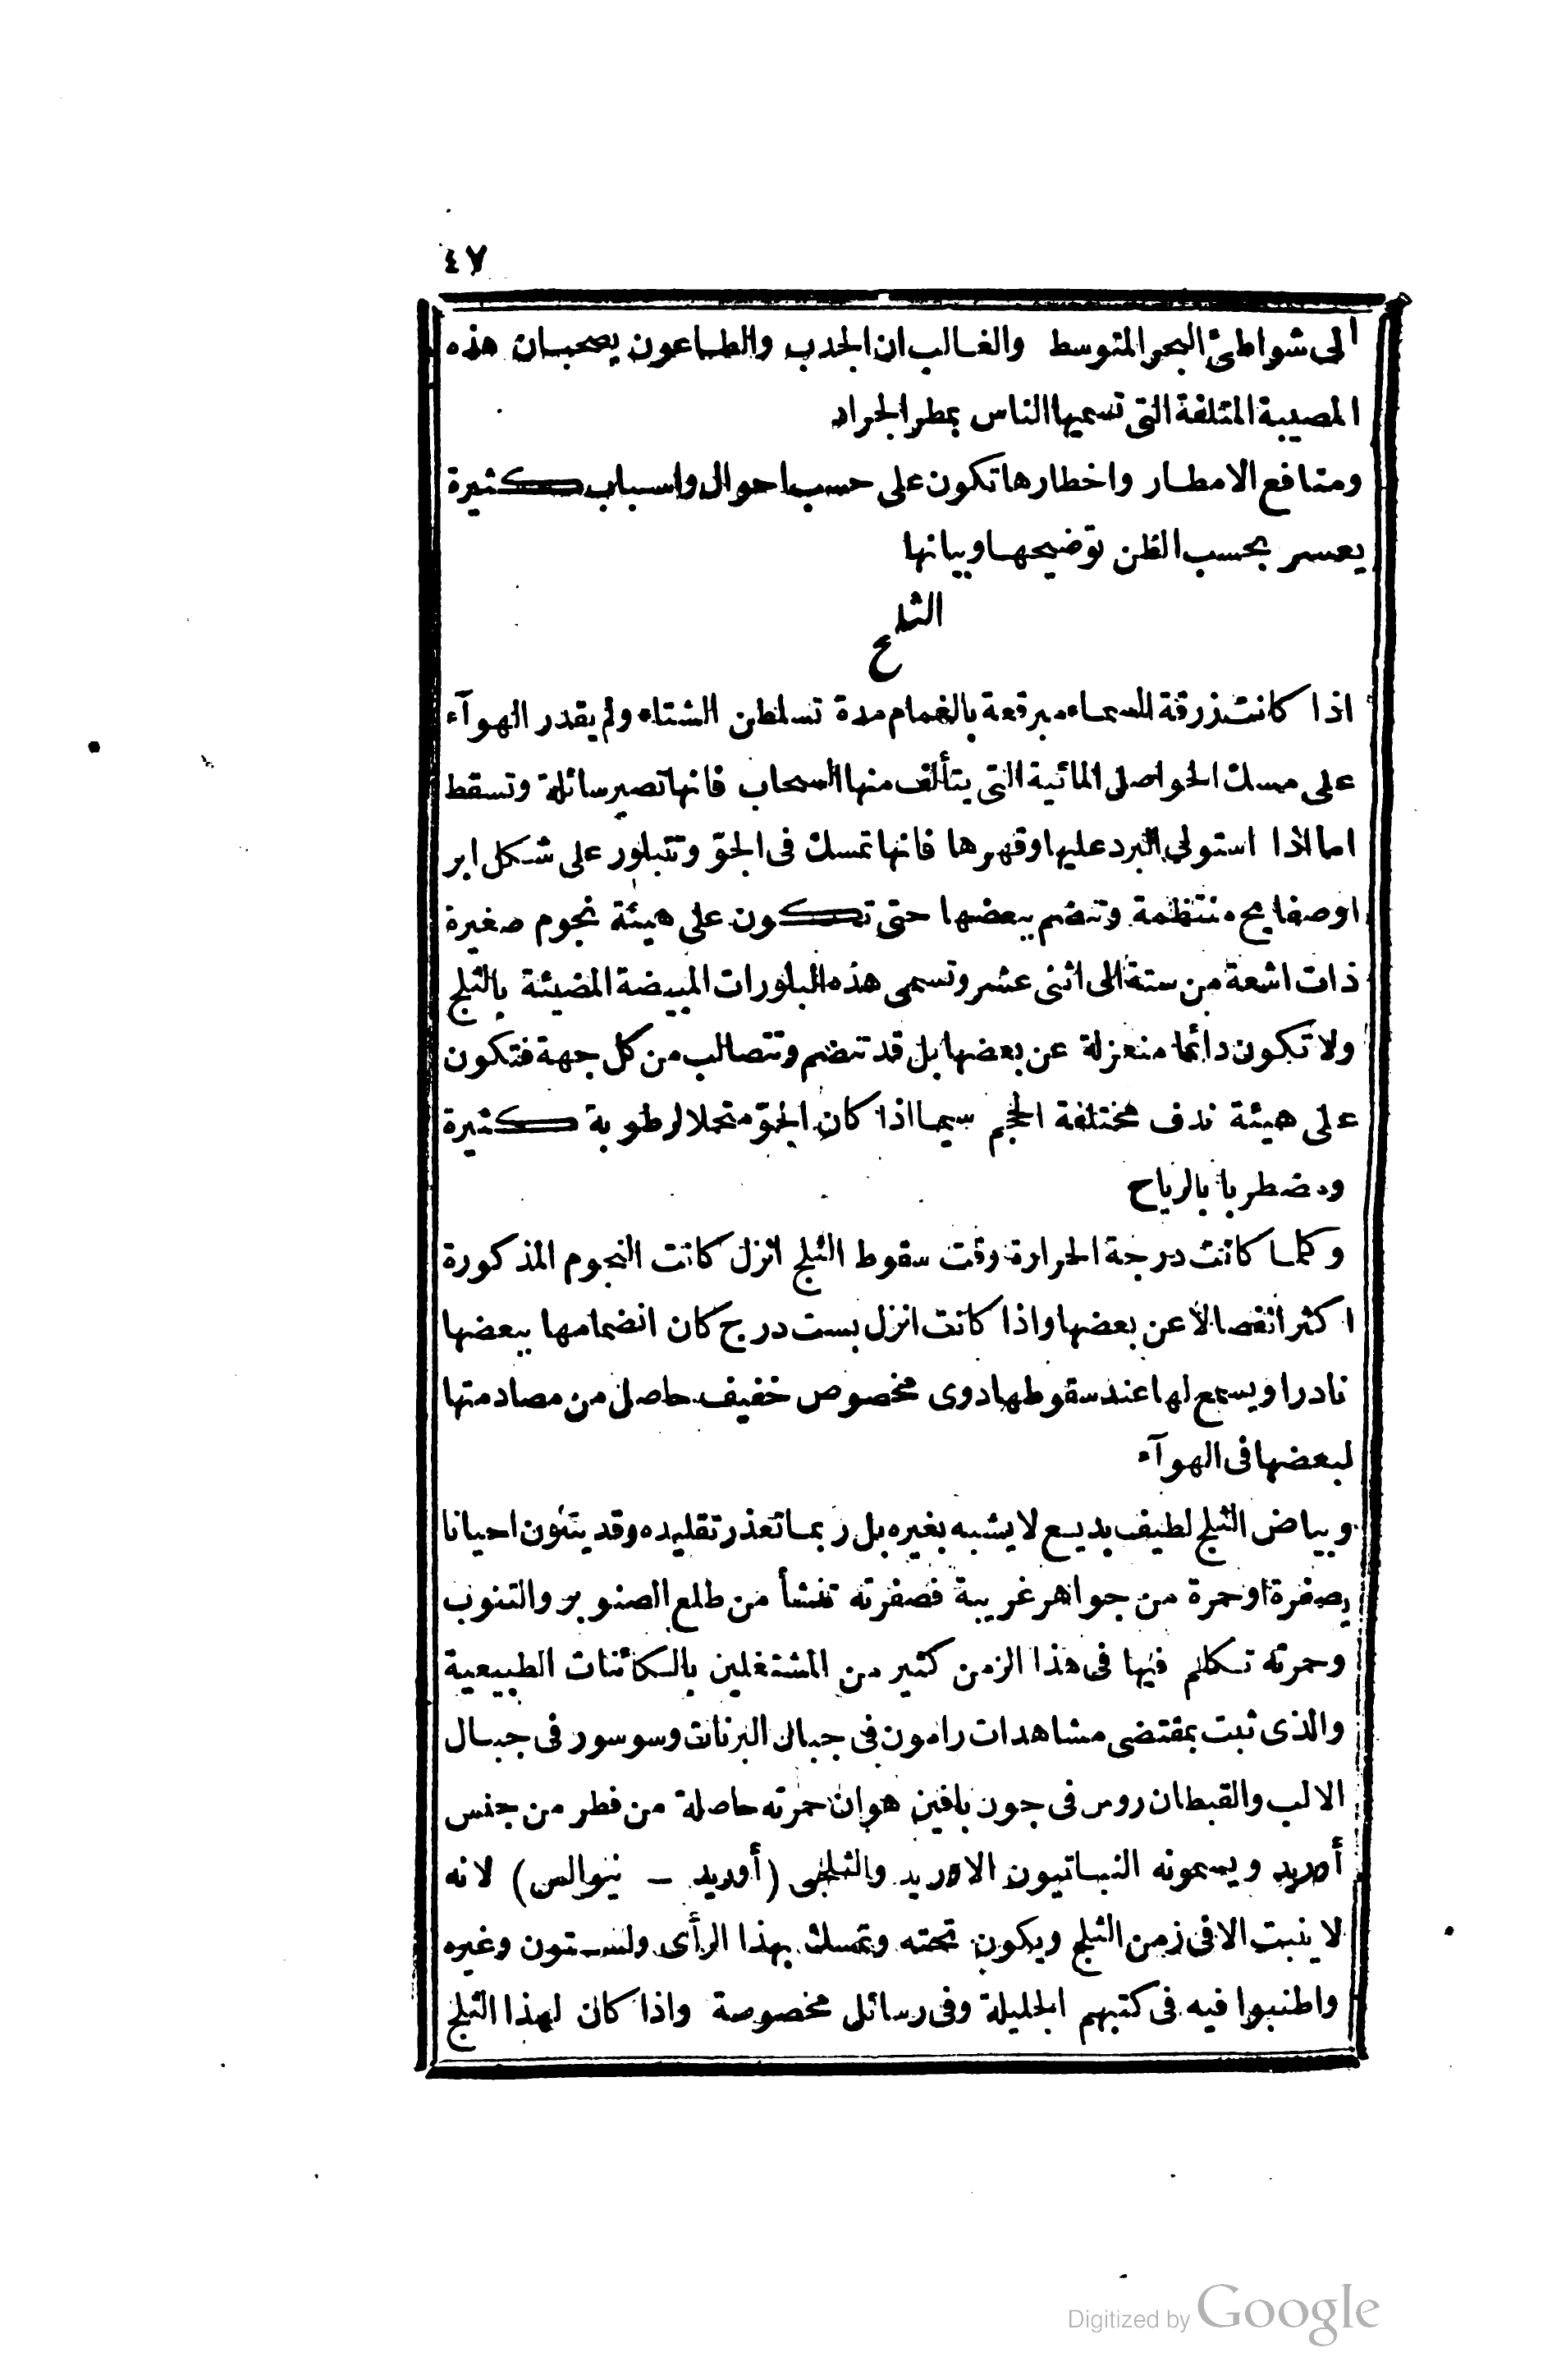 ٤٧
الى شواطئ البحر المتوسط والغالب ان الجدب والطاعون يصحبان هذه
المصيبة المتلفة التى تسميها الناس بمطر الجراد
ومنافع الامطار واخطارها تكون على حسب احوال واسباب كثيرة
يعسر بحسب الظن توضيحها وبيانها
الثلج
اذا كانت زرقة السماء مبرقعة بالغمام مدة تسلطن الشتاء ولم يقدر الهوآء
على مسك الحواصل المائية التى يتألف منها السحاب فانها تصير سائلة وتسقط
اما اذا استولى البرد عليها وقهرها فانها تمسك فى الجوّ وتتبلور على شكل ابر
اوصفايح منتظمة وتنضم ببعضها حتى تكون على هيئة نجوم صغيرة
ذات اشعة من ستة الى اثنى عشر وتسمى هذه البلورات المبيضة المضيئة بالثلج
ولا تكون دائما منعزلة عن بعضها بل قد تنضم وتتصالب من كل جهة فتكون
على هيئة ندف مختلفة الحجم سيما اذا كان الجوّ متحملا لرطوبة كثيرة
ومضطربا بالرياح
وكلما كانت درجة الحرارة وقت سقوط الثلج انزل كانت النجوم المذكورة
اكثر انفصالا عن بعضها واذا كانت انزل بست درج كان انضمامها ببعضها
نادرا ويسمع لها عند سقوطها دوى مخصوص خفيف حاصل من مصادمتها
لبعضها فى الهوآء
وبياض الثلج لطيف بديع لا يشبه بغيره بل ربما تعذر تقليده وقد يتلون احيانا
بصفرة او حمرة من جواهر غريبة فصفرته تنشأ من طلع الصنوبر والتنوب
وحمرته تكلم فيها فى هذا الزمن كثير من المشتغلين بالكائنات الطبيعية
والذى ثبت بمقتضى مشاهدات رامون فى جبال البرنات وسوسور فى جبال
الالب والقبطان روس فى جون بافين هو ان حمرته حاصلة من فطر من جنس
أوريد ويسمونه النباتيون الاوريد والثلجى (أوريد – نيوالس) لانه
لا ينبت الا فى زمن الثلج ويكون تحته وتمسك بهذا الرأى ولستون وغيره
واطنبوا فيه فى كتبهم الجليلة وفى رسائل مخصوصة واذا كان لهذا الثلج
Digitized by Google